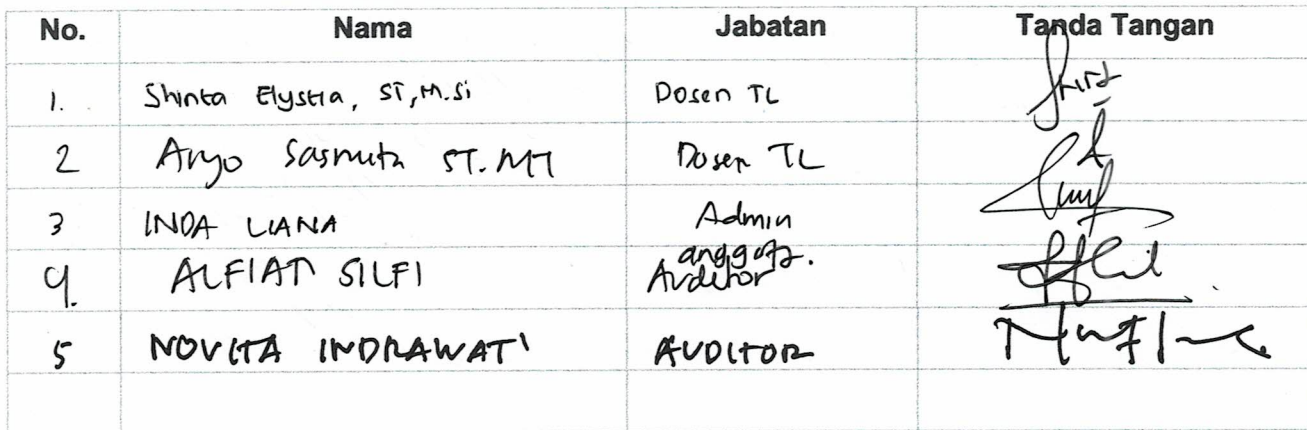 No. Nama Jabatan Tanda Tangan
1. Shinta Elystia, ST, M.Si Dosen TL
2 Aryo Sasmita ST. MT Dosen TL
3 INDA LIANA Admin
4. ALFIAN SILFI anggota. Auditor
5 NOVITA INDRAWATI AUDITOR